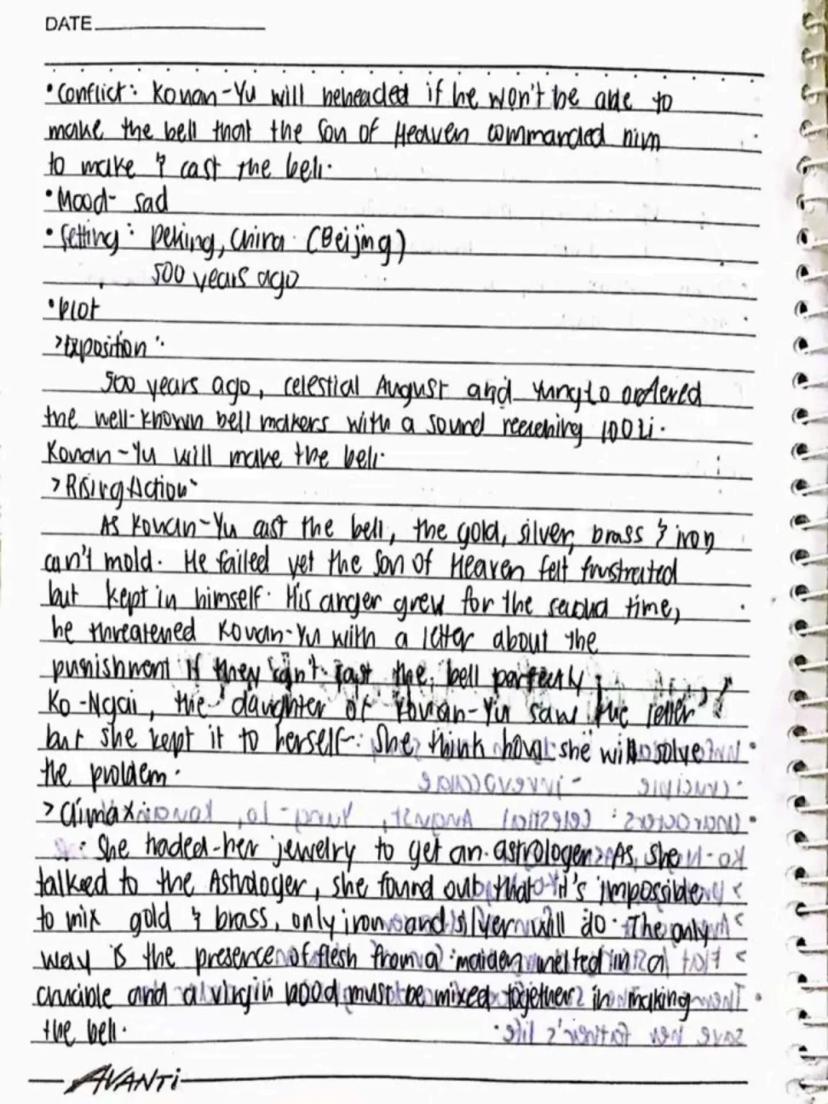 DATE
•Conflict: Kouan-Yu will beheaded if he won't be able to
make the bell that the Son of Heaven commanded him
to make & cast the bell.
•Mood- sad
•Setting: Peking, China (Beijing)
500 years ago
•Plot
>Exposition:
500 years ago, celestial August and Yunglo ordered
the well-known bell makers with a sound reaching 100Li.
Kouan-Yu will make the bell.
>Rising Action
As Kouan-Yu cast the bell, the gold, silver, brass & iron
can't mold. He failed yet the Son of Heaven felt frustrated
but kept in himself. His anger grew for the second time,
he threatened Kouan-Yu with a letter about the
punishment if they can't cast the bell perfectly.
Ko-Ngai, the daughter of Kouan-Yu saw the letter
but she kept it to herself. She think how she will solve
the problem.
>Climax
She traded her jewelry to get an astrologer. As she
talked to the Astrologer, she found out that it's impossible
to mix gold & brass, only iron and silver will do. The only
way is the presence of flesh from a maiden melted in a
crucible and a virgin blood must be mixed together in making
the bell.
AVANTi